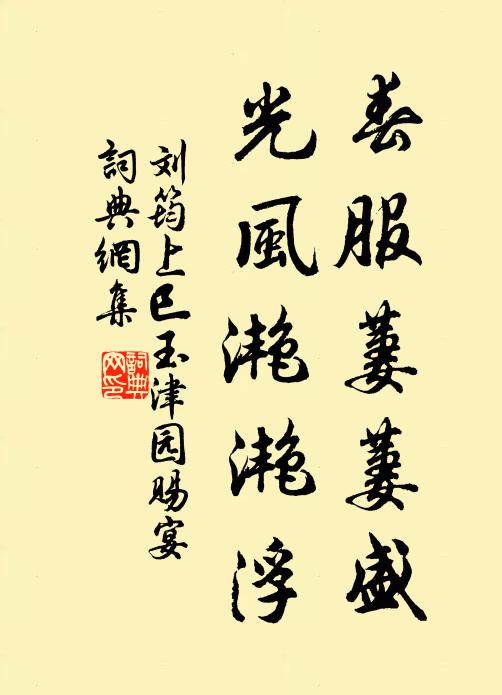 春服萋萋盛
光風灔灔浮
刘筠上巳玉津园赐宴
詞典網集
詞典
网印